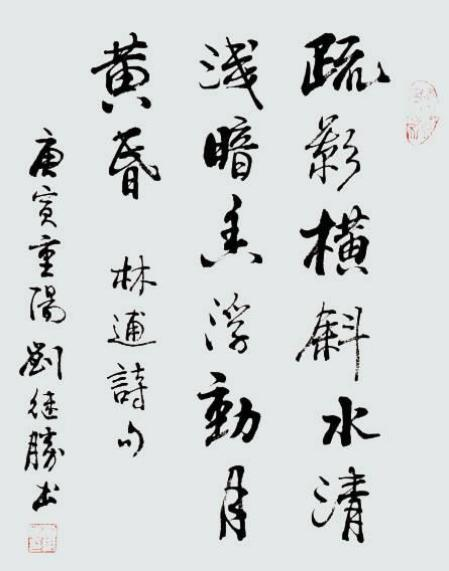 疏影横斜水清
浅暗香浮动月
黄昏
林逋詩句
庚寅重陽劉继勝书